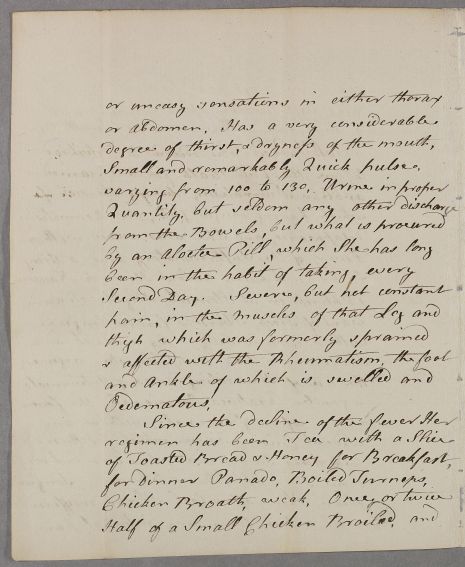 or uneasy sensations in either thorax
or abdomen, Has a very considerable
degree of thirst, & dryness of the mouth,
Small and remarkably Quick pulse,
varying from 100 to 130, Urine in proper
Quantity, but seldom any other discharge
from the Bowels, but what is procured
by an Aloetic Pill, which She has long
been in the habit of taking, every
Second Day. Severe, but not constant
pain, in the muscles of that Leg and
thigh which was formerly sprained
& affected with the Rheumatism, the foot
and Ankle of which is swelled and
Oedematous,
Since the decline of the fever Her
regimen has been Tea with a Slice
of Toasted Bread & Honey for Breakfast,
for dinner Panado, Boiled Turneps,
Chicken Broath, weak, Once, or twice
Half of a Small Chicken Broiled, and